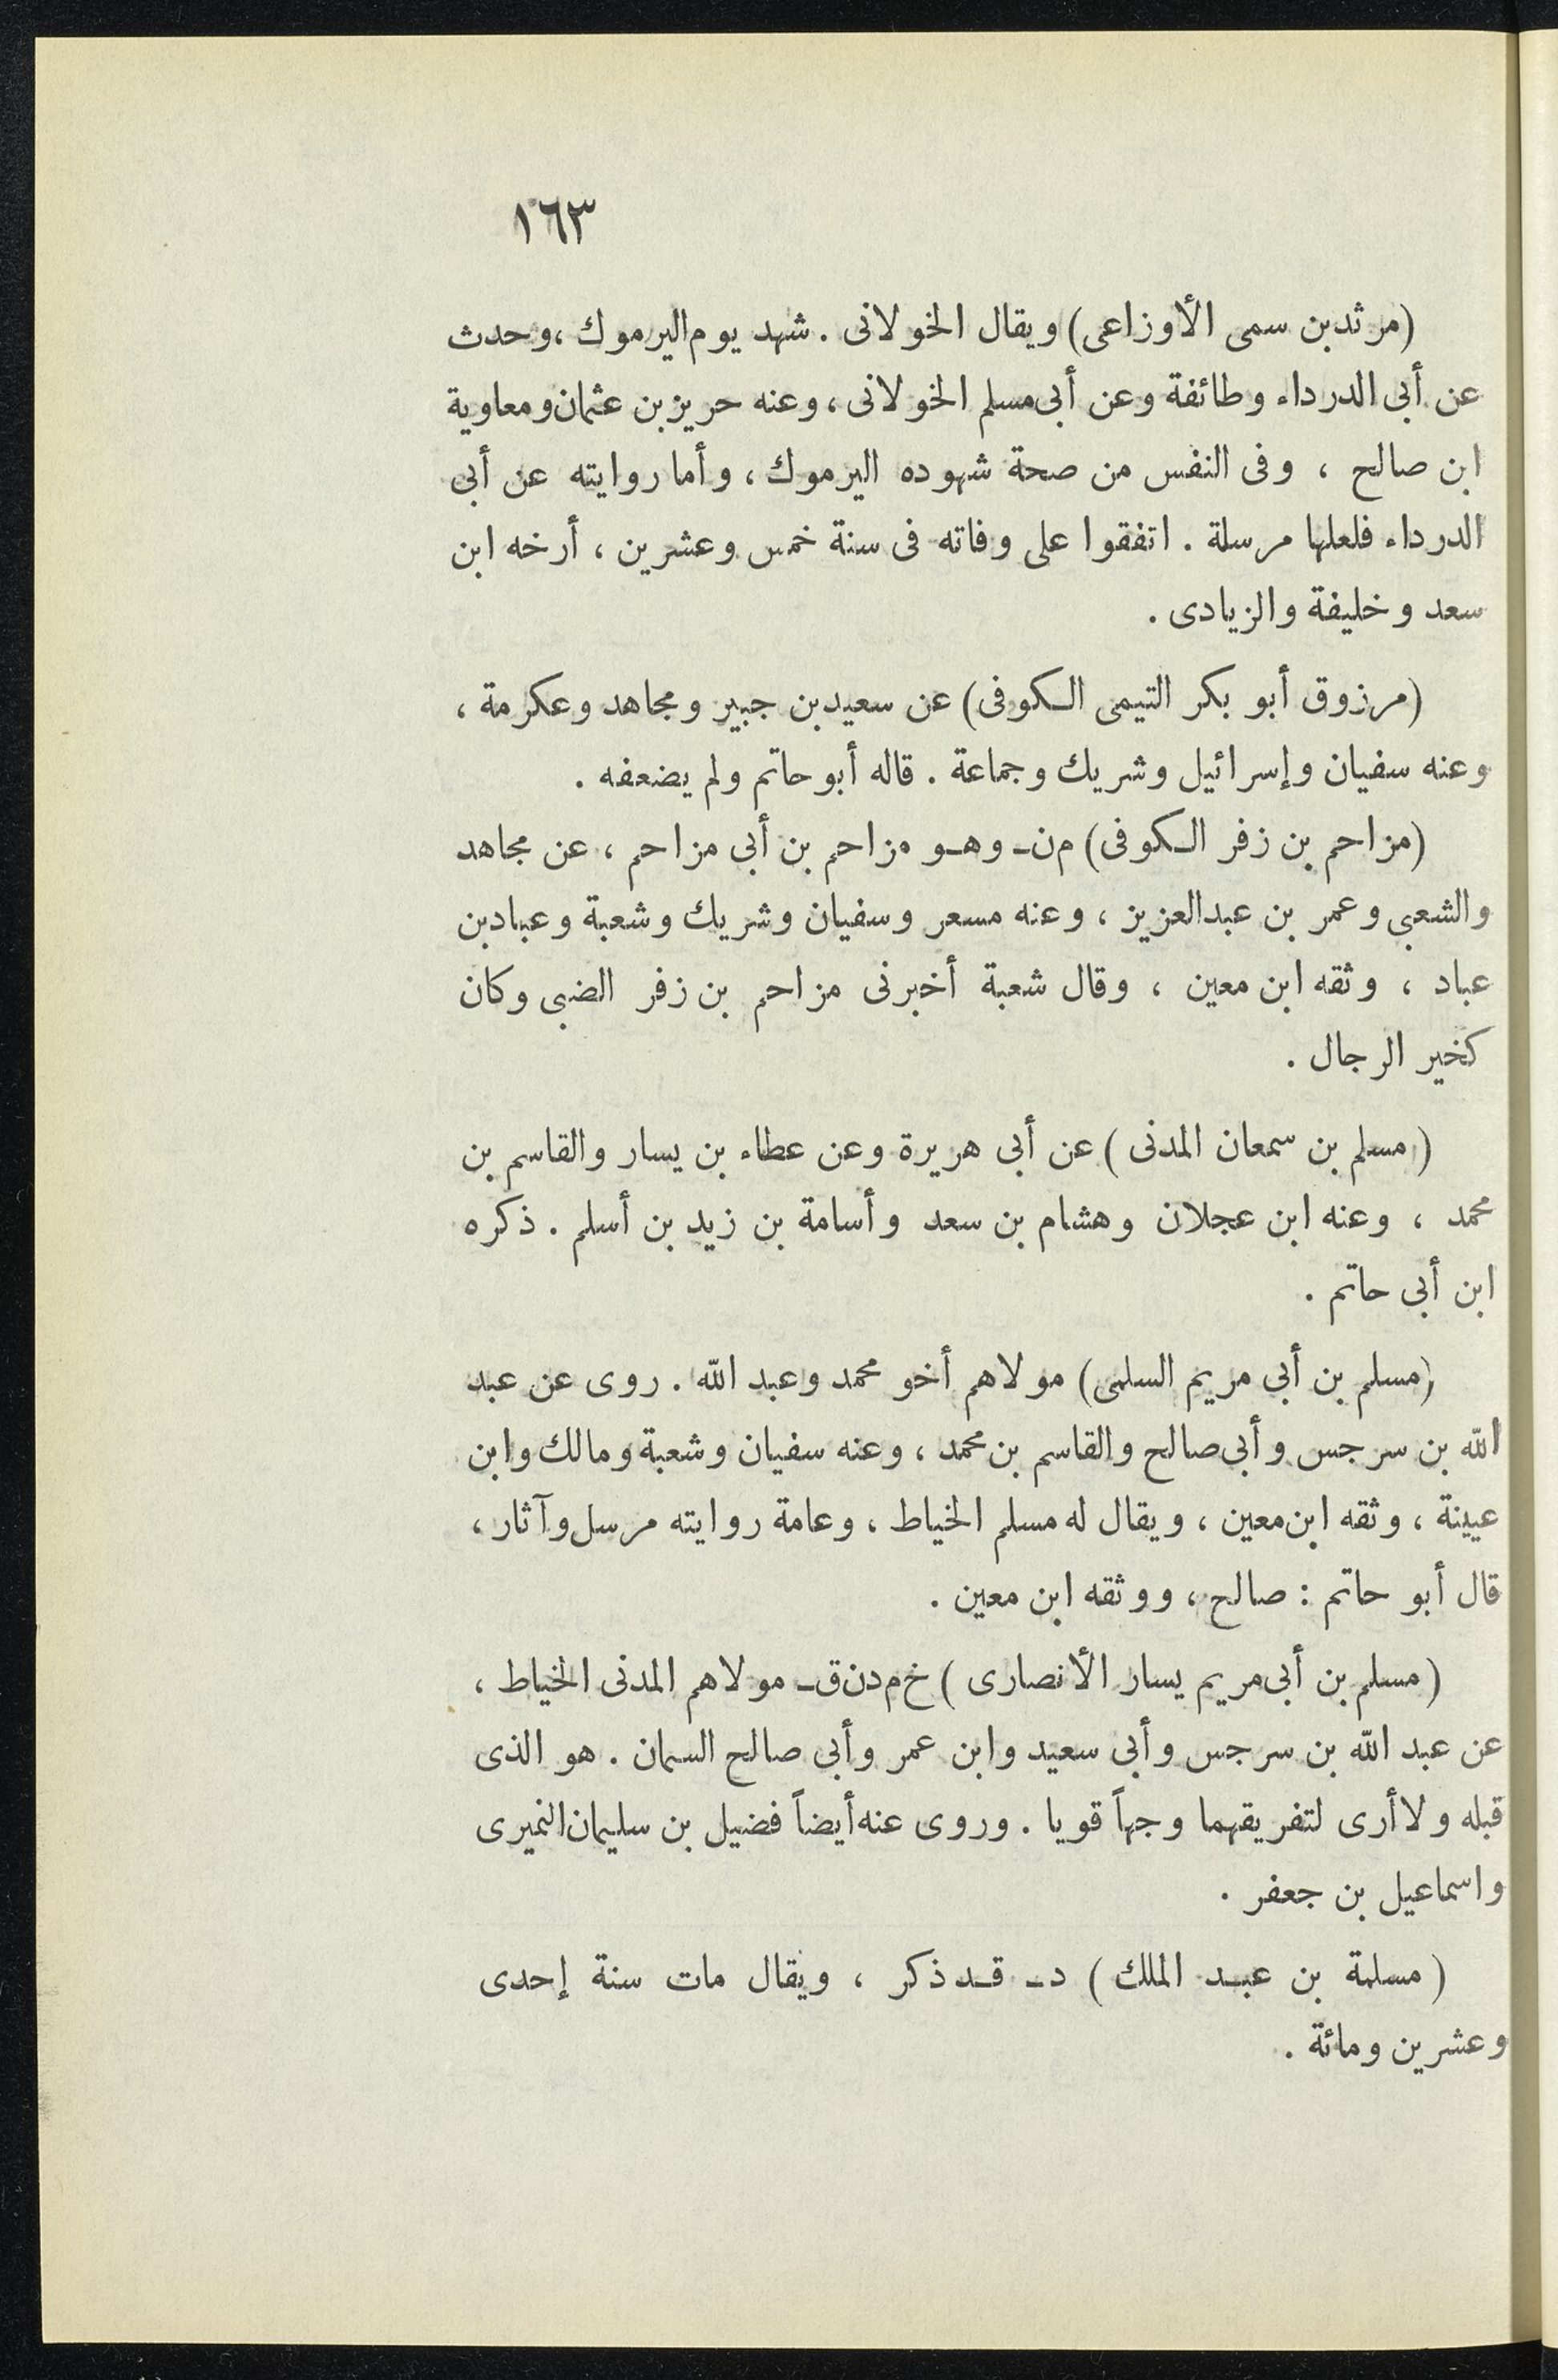 ١٦٣
(مرثد بن سمى الأوزاعى) ويقال الخولانى . شهد يوم اليرموك ، وحدث
عن أبى الدرداء وطائفة وعن أبى مسلم الخولانى ، وعنه حريز بن عثمان ومعاوية
ابن صالح ، وفى النفس من صحة شهوده اليرموك ، وأما روايته عن أبى
الدرداء فلعلها مرسلة . اتفقوا على وفاته فى سنة خمس وعشرين ، أرخه ابن
سعد وخليفة والزيادى .
(مرزوق أبو بكر التيمى الكوفى) عن سعيد بن جبير ومجاهد وعكرمة ،
وعنه سفيان وإسرائيل وشريك وجماعة . قاله أبو حاتم ولم يضعفه .
(مزاحم بن زفر الكوفى) م ن ـ وهو مزاحم بن أبى مزاحم ، عن مجاهد
والشعبى وعمر بن عبد العزيز ، وعنه مسعر وسفيان وشريك وشعبة وعباد بن
عباد ، وثقه ابن معين ، وقال شعبة أخبرنى مزاحم بن زفر الضبى وكان
كخير الرجال .
( مسلم بن سمعان المدنى ) عن أبى هريرة وعن عطاء بن يسار والقاسم بن
محمد ، وعنه ابن عجلان وهشام بن سعد وأسامة بن زيد بن أسلم . ذكره
ابن أبى حاتم .
(مسلم بن أبى مريم السلمى) مولاهم أخو محمد وعبد الله . روى عن عبد
الله بن سرجس وأبى صالح والقاسم بن محمد ، وعنه سفيان وشعبة ومالك وابن
عيينة ، وثقه ابن معين ، ويقال له مسلم الخياط ، وعامة روايته مرسل وآثار ،
قال أبو حاتم : صالح ، ووثقه ابن معين .
( مسلم بن أبى مريم يسار الأنصارى ) خ م د ن ق ـ مولاهم المدنى الخياط ،
عن عبد الله بن سرجس وأبى سعيد وابن عمر وأبى صالح السمان . هو الذى
قبله ولا أرى لتفريقهما وجهاً قويا . وروى عنه أيضاً فضيل بن سليمان النميرى
واسماعيل بن جعفر .
( مسلمة بن عبد الملك ) د ـ قد ذكر ، ويقال مات سنة إحدى
وعشرين ومائة .